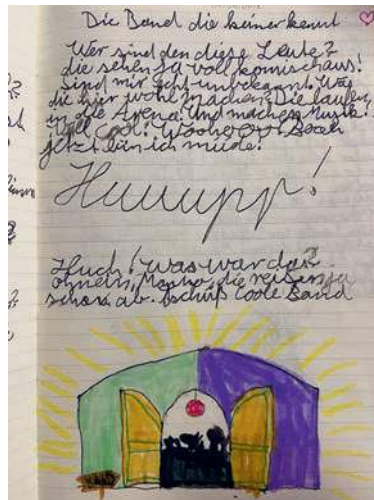 Die Band die keiner kennt
Wer sind den diese Leute?
die sehen ja voll komisch aus!
sind mir echt unbekannt. Was
die hier wohl machen? Die laufen
in die Arena! Und machen Musik!
Voll cool! Boah
jetzt bin ich müde!
Huuupp!
Huch! was war das?
oh nein, Mecho, die reisen ja
schon ab. tschüß Coole Band